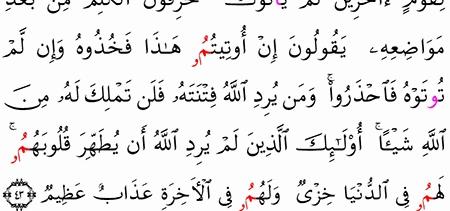 لِقَوْمٍ ءَاخَرِينَ لَمْ يَاتُوكَ يُحَرِّفُونَ الْكَلِمَ مِنْ بَعْدِ
مَوَاضِعِهِۦ يَقُولُونَ إِنْ أُوتِيتُمُۥ هَٰذَا فَخُذُوهُ وَإِن لَّمْ
تُوتَوْهُ فَاحْذَرُواْۚ وَمَن يُرِدِ اللَّهُ فِتْنَتَهُۥ فَلَن تَمْلِكَ لَهُۥ مِنَ
اللَّهِ شَيْـًٔاۚ أُوْلَٰٓئِكَ الَّذِينَ لَمْ يُرِدِ اللَّهُ أَن يُطَهِّرَ قُلُوبَهُمُۥۚ
لَهُمُۥ فِي الدُّنْيَا خِزْيٌ وَلَهُمُۥ فِي الْأَخِرَةِ عَذَابٌ عَظِيمٌ ٤٣